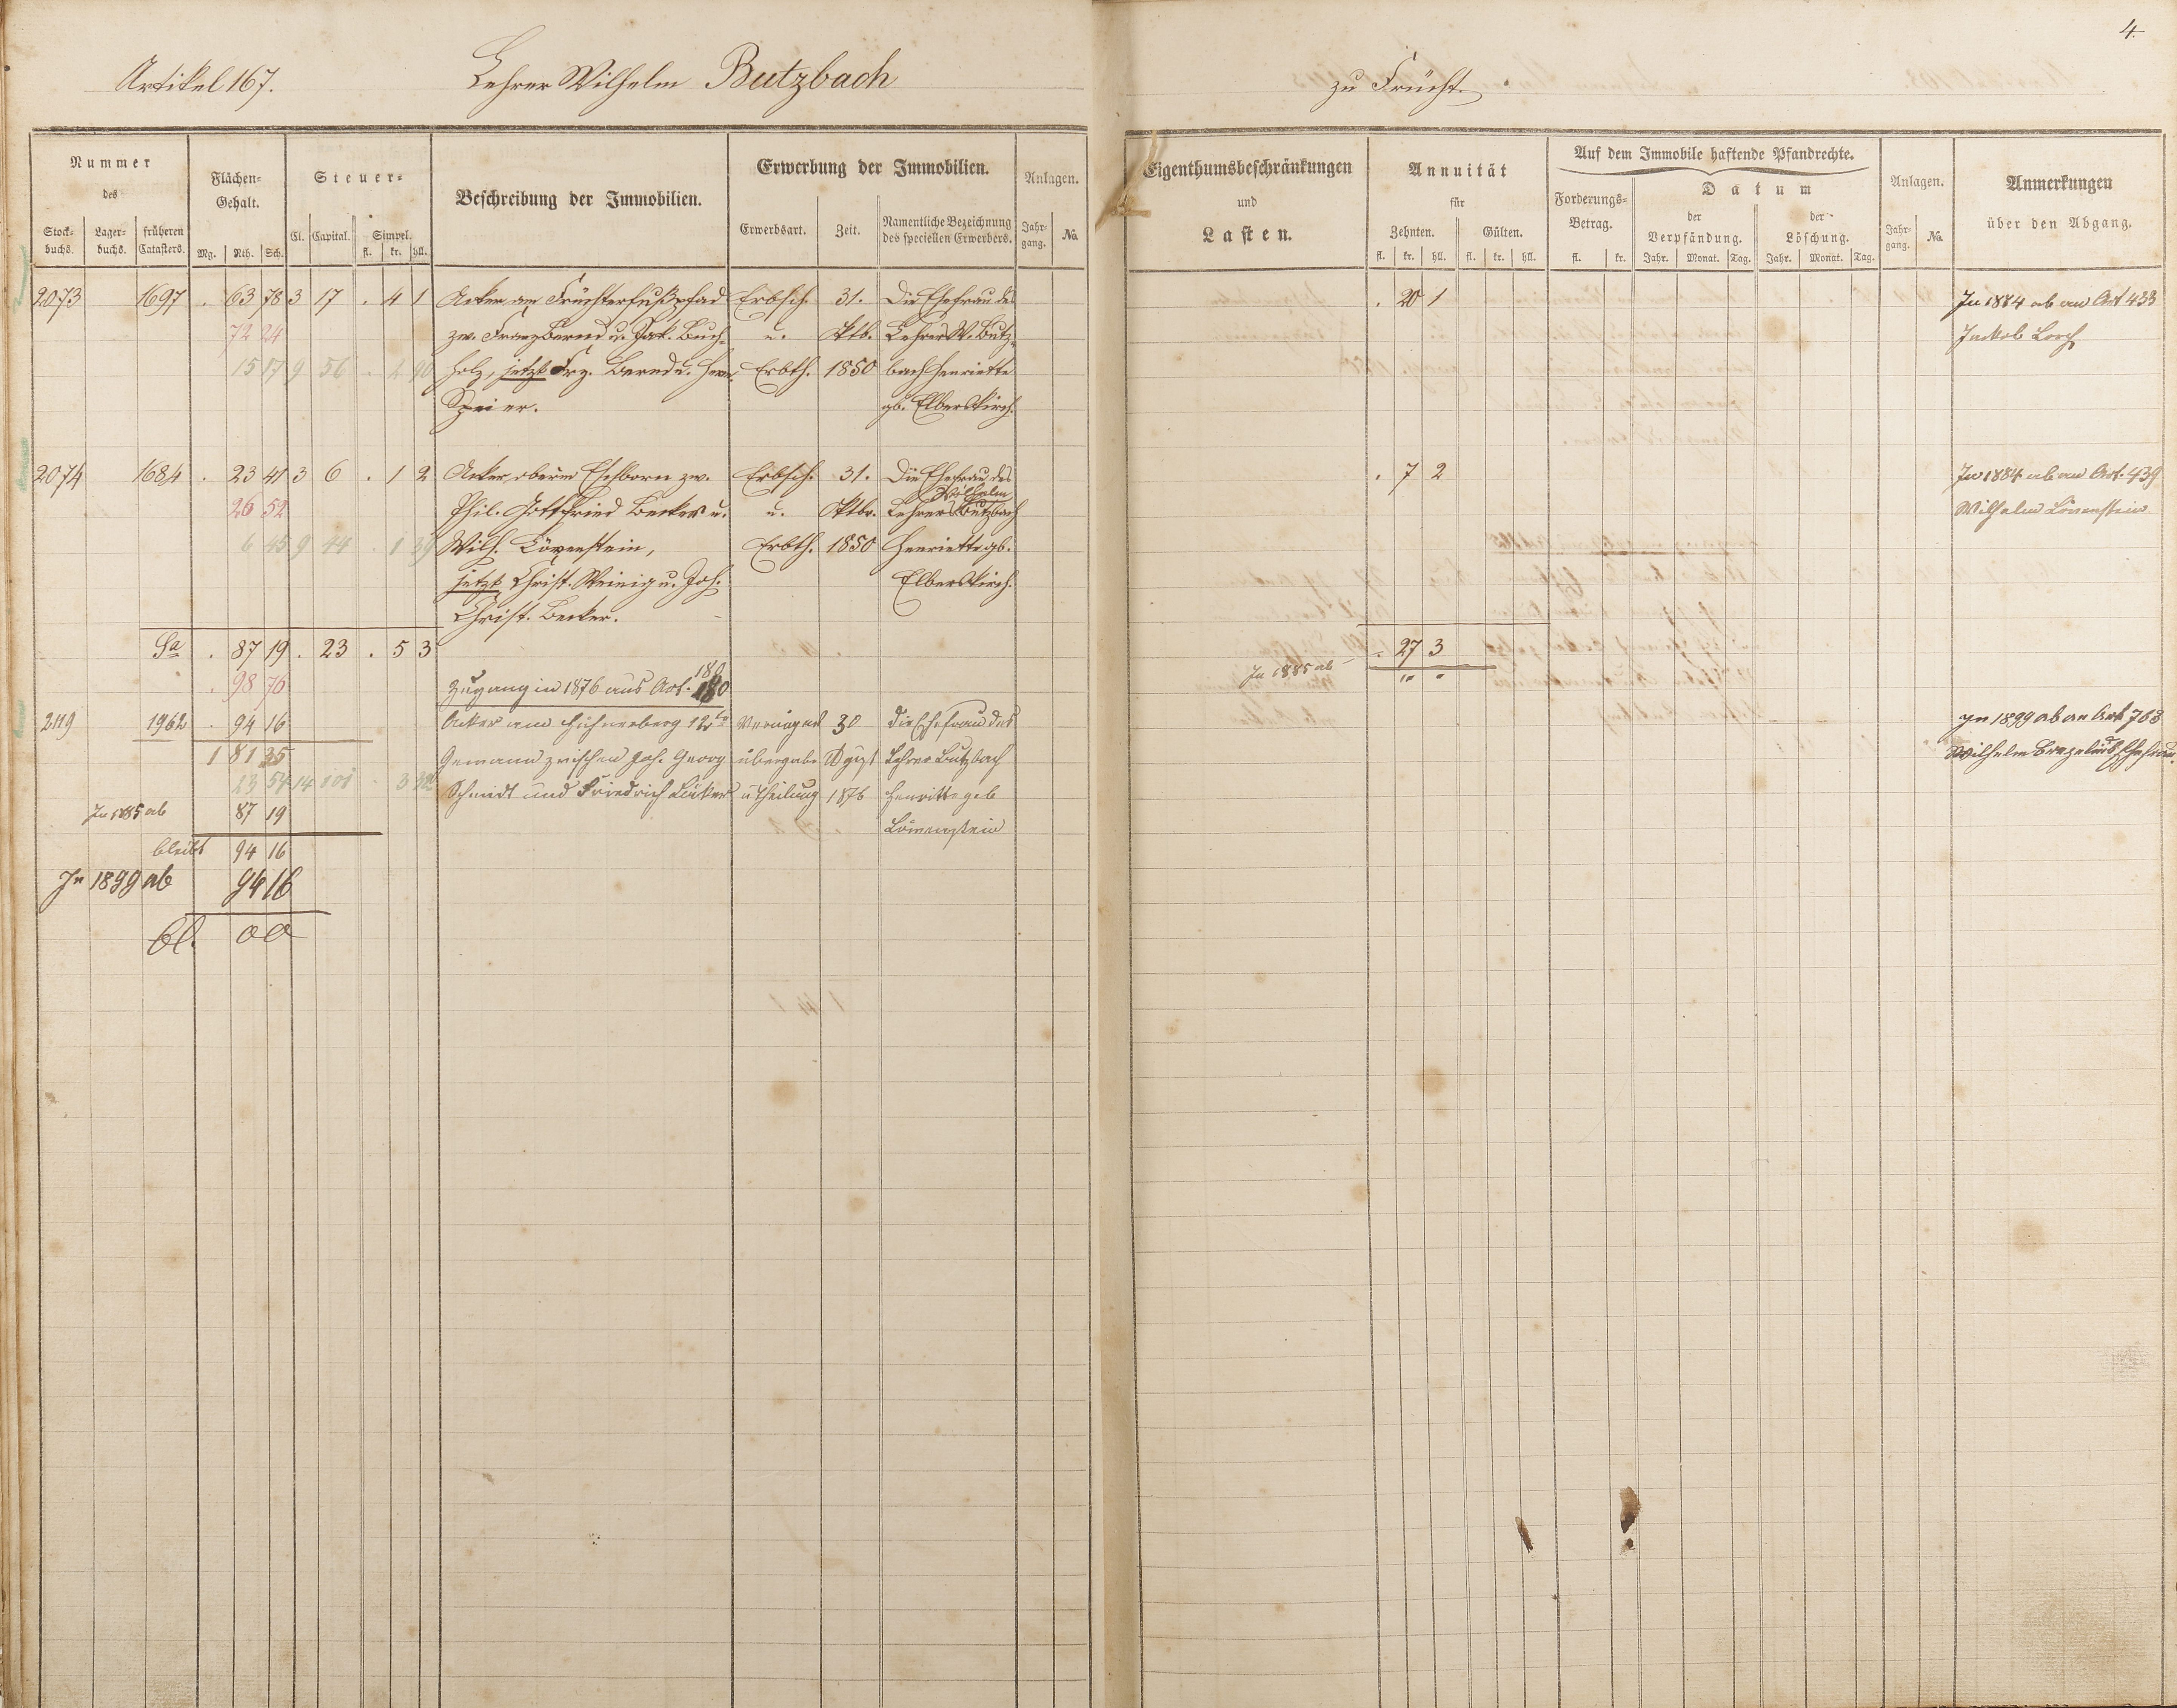 4.
Artikel 167. Lehrer Wilhelm Butzbach zu Frücht.
Nummer des
Stock-buchs. Lager-buchs. früheren Catasters.
Flächen-Gehalt.
Mg. Rth. Sch.
Steuer-
Cl. Capital. Simpel.
fl. kr. hll.
Beschreibung der Immobilien.
Erwerbung der Immobilien.
Erwerbsart. Zeit. Namentliche Bezeichnung des speciellen Erwerbers.
Anlagen.
Jahr-gang. No.
Eigenthumsbeschränkungen
und
Lasten.
Annuität
für
Zehnten. Gülten.
fl. kr. hll. fl. kr. hll.
Auf dem Immobile haftende Pfandrechte.
Forderungs-Betrag.
fl. kr.
Datum
der Verpfändung. der Löschung.
Jahr. Monat. Tag. Jahr. Monat. Tag.
Anlagen.
Jahr-gang. No.
Anmerkungen
über den Abgang.
2073 1697 . 63 78 3 17 . 4 1 Acker am Früchterfußpfad Erbsch. 31. Die Ehefrau des . 20 1 In 1884 ab an Art 433
72 24 zw. Franz Bernd u. Jak. Buch- u. Oktb. Lehrers W. Butz- Jackob Lorch
15 17 9 56 . 4 90 holz, jetzt Frz. Bernd u. Erbth. 1850 bach Henriette
Speier. gb. Elberskirch.
2074 1684 . 23 41 3 6 . 1 2 Acker oberm Eschborn zw. Erbsch. 31. Die Ehefrau des . 7 2 In 1884 ab an Art. 439
26 52 Phil. Gottfried Becker u. u. Oktbr. Lehrers Wilhelm Butzbach Wilhelm Löwenstein
6 45 9 44 . 1 29 Wilh. Löwenstein, Erbth. 1850 Henriette gb.
jetzt Christ. Weinig u. Joh. Elberskirch.
Christ. Becker.
Sa . 87 19 . 23 . 5 3 . 27 3
. 98 76 Zugang in 1876 aus Art. 180 In 1885 ab
2119 1962 . 94 16 Acker am Hühnerberg 12te 30 die Ehefrau des In 1899 ab an Art 763
1 81 35 Gewann zwischen Joh. Georg übergabe Lehrer Butzbach Wilhelm Ehefrau.
13 54 14 101 3 Schmidt und Friedrich u Theilung 1876 Henriette geb
In 1885 ab 87 19 Löwenstein
bleibt 94 16
In 1899 ab 94 16
bl. 00